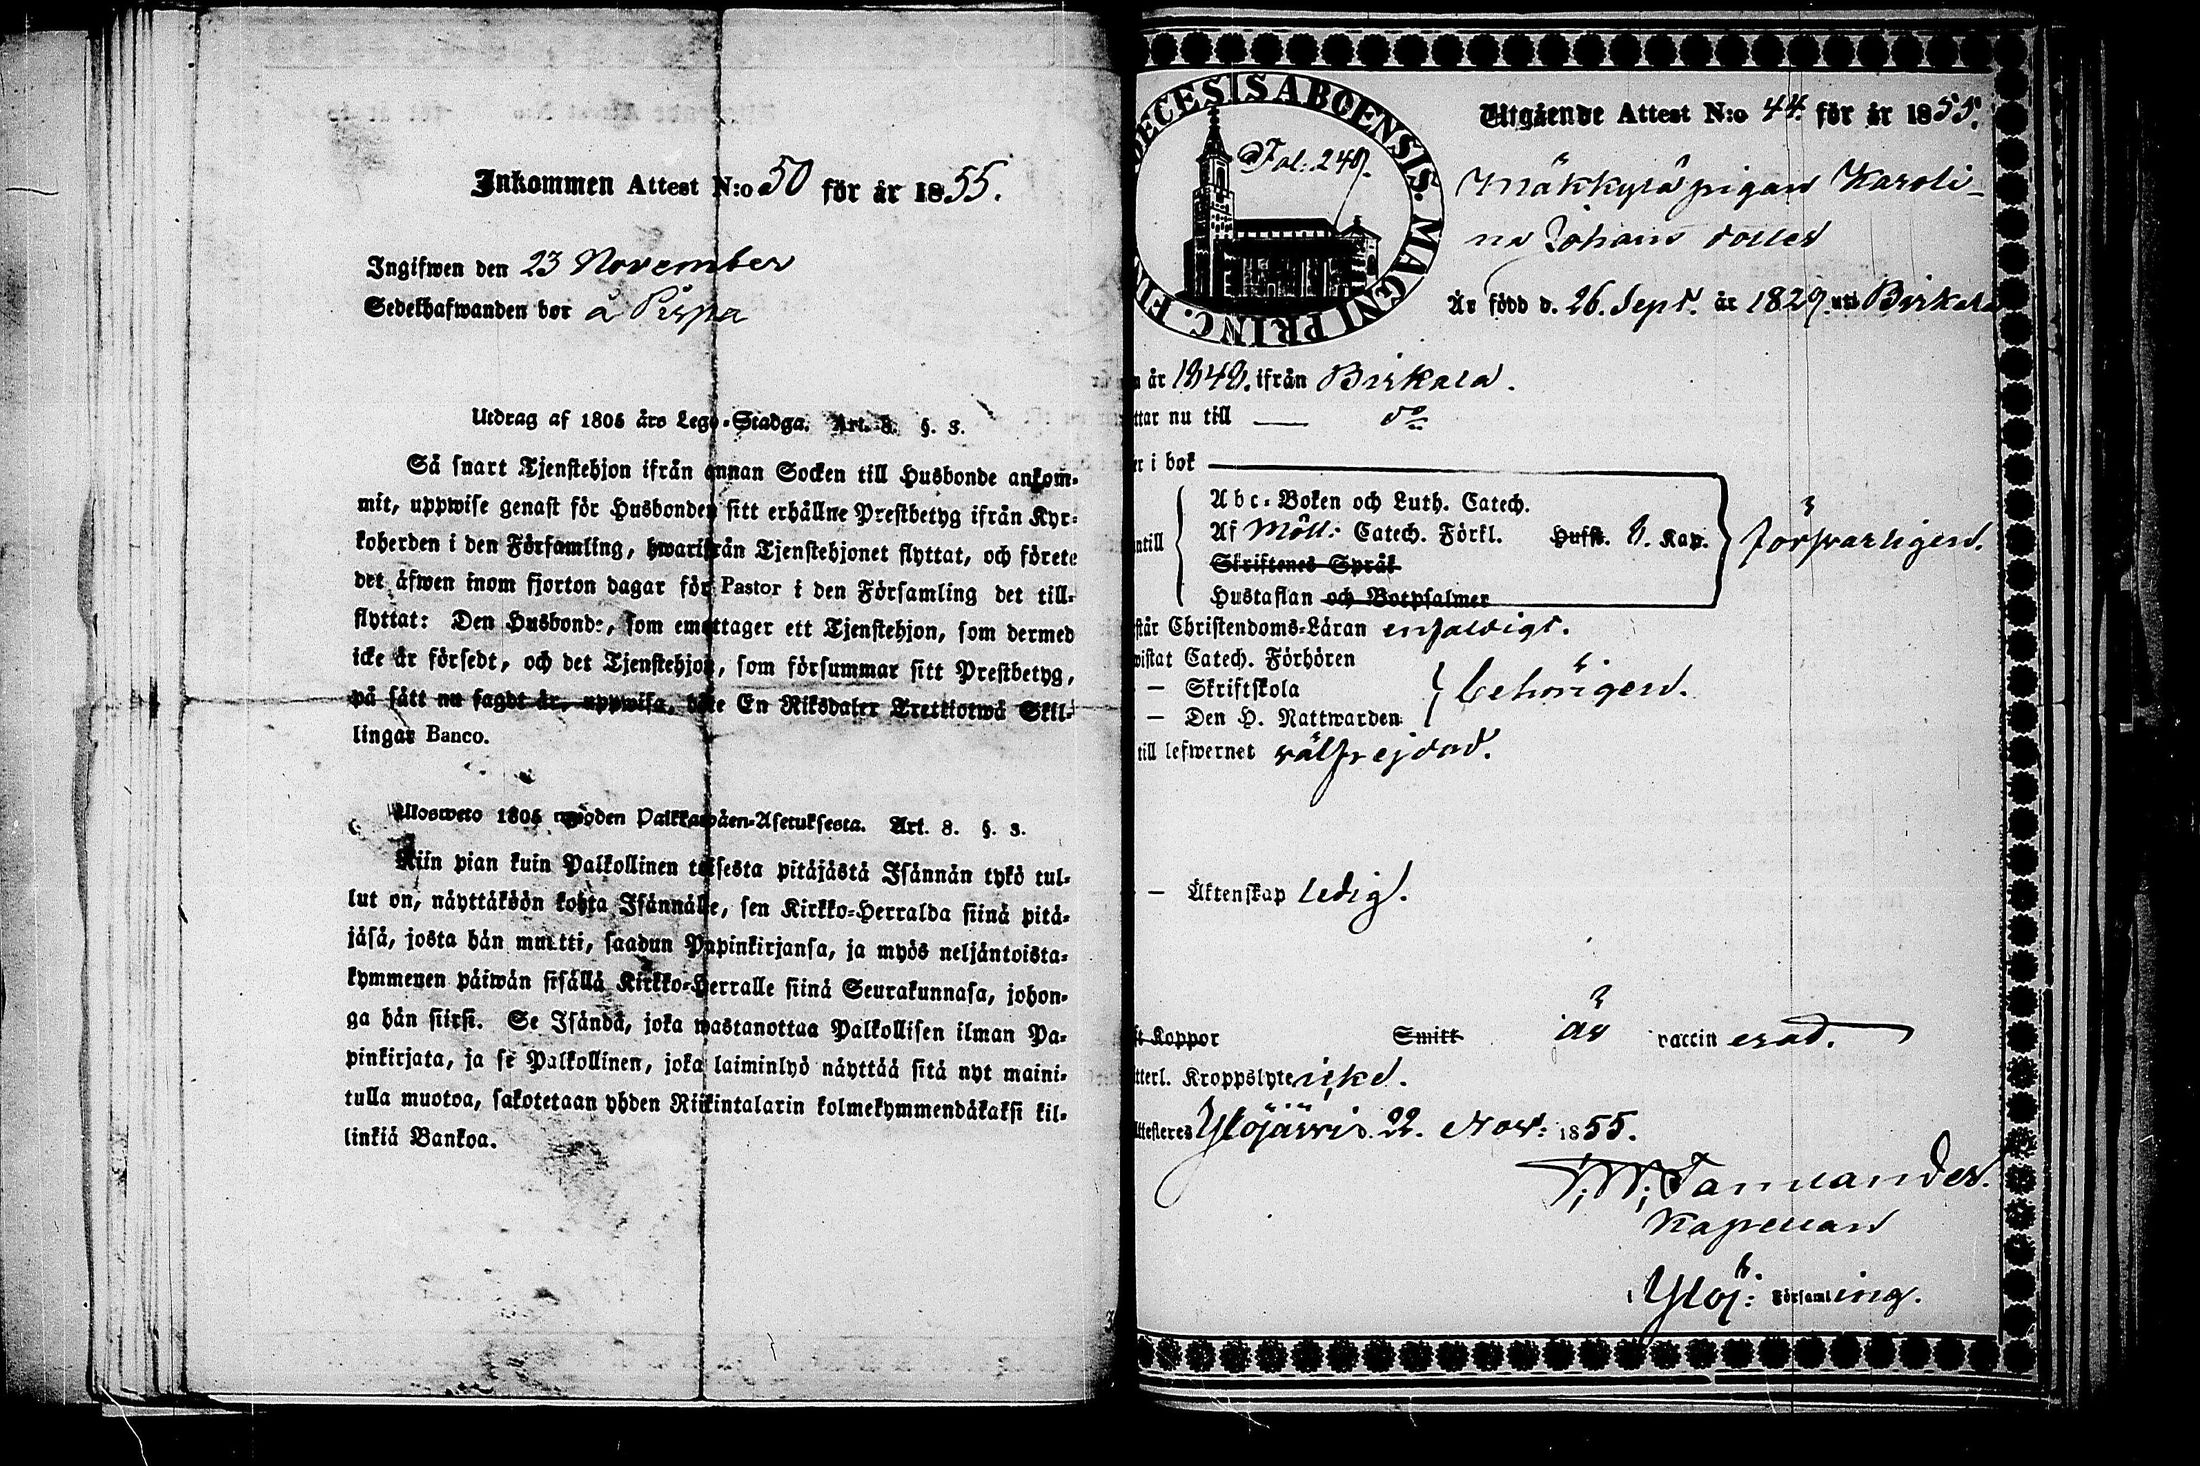 Inkommen Attest N:o 50 för år 1855.
Ingifwen den 23 November
Sedelhafwanden bor å Pispa
Utdrag af 1805 års Lego-Stadga. Art. 8. §. 3.
Så snart Tjenstehjon ifrån annan Socken till Husbonde ankom-
mit, uppwise genast för Husbonden sitt erhållne Prestbetyg ifrån Kyr-
koherden i den Församling, hwarifrån Tjenstehjonet flyttat, och förete
det äfwen inom fjorton dagar för Pastor i den Församling det till-
flyttat: Den Husbonde, som emottager ett Tjenstehjon, som dermed
icke är försedt, och det Tjenstehjon, som försummar sitt Prestbetyg,
på sätt nu sagdt är, uppwisa, böte En Riksdaler Trettiotwå Skil-
lingar Banco.
Ulosweto 1805 wuoden Palkkawäen-Asetuksesta. Art. 8. §. 3.
Niin pian kuin Palkollinen toisesta pitäjästä Isännän tykö tul-
lut on, näyttäköön kohta Isännälle, sen Kirkko-Herralda siinä pitä-
jäsä, josta hän muutti, saadun Papinkirjansa, ja myös neljäntoista-
kymmenen päiwän sisällä Kirkko-Herralle siinä Seurakunnasa, johon-
ga hän siirsi. Se Isändä, joka wastanottaa Palkollisen ilman Pa-
pinkirjata, ja se Palkollinen, joka laiminlyö näyttää sitä nyt maini-
tulla muotoa, sakotetaan yhden Riikintalarin kolmekymmendäkaksi kil-
linkiä Bankoa.
DECESIS ABOENSIS. MAGNI PRINC. FIN
Fol: 240.
Utgående Attest N:o 44. för år 1855.
Mäkkylä pigan Karoli-
na Johans dotter
Är född d. 26. Sept. år 1829. uti Birkala
n år 1848. ifrån Birkala.
ttar nu till — do
er i bok
Abc-Boken och Luth. Catech.
Af Möll: Catech. Förkl. Hufst. 8. Kap.
ntill försvarligen.
Skriftenes Språk
Hustaflan och Botpsalmer
står Christendoms-Läran enfaldigt.
wistat Catech. Förhören
— Skriftskola behörigen.
— Den H. Nattwarden
till lefwernet välfrejdad.
— Äktenskap ledig.
ft Koppor Smitt är vaccinerad.
tterl. Kroppslyte icke.
Attesteres Ylöjärvi d. 22. Nov: 1855.
Kapellan
i Ylöj: Församling.